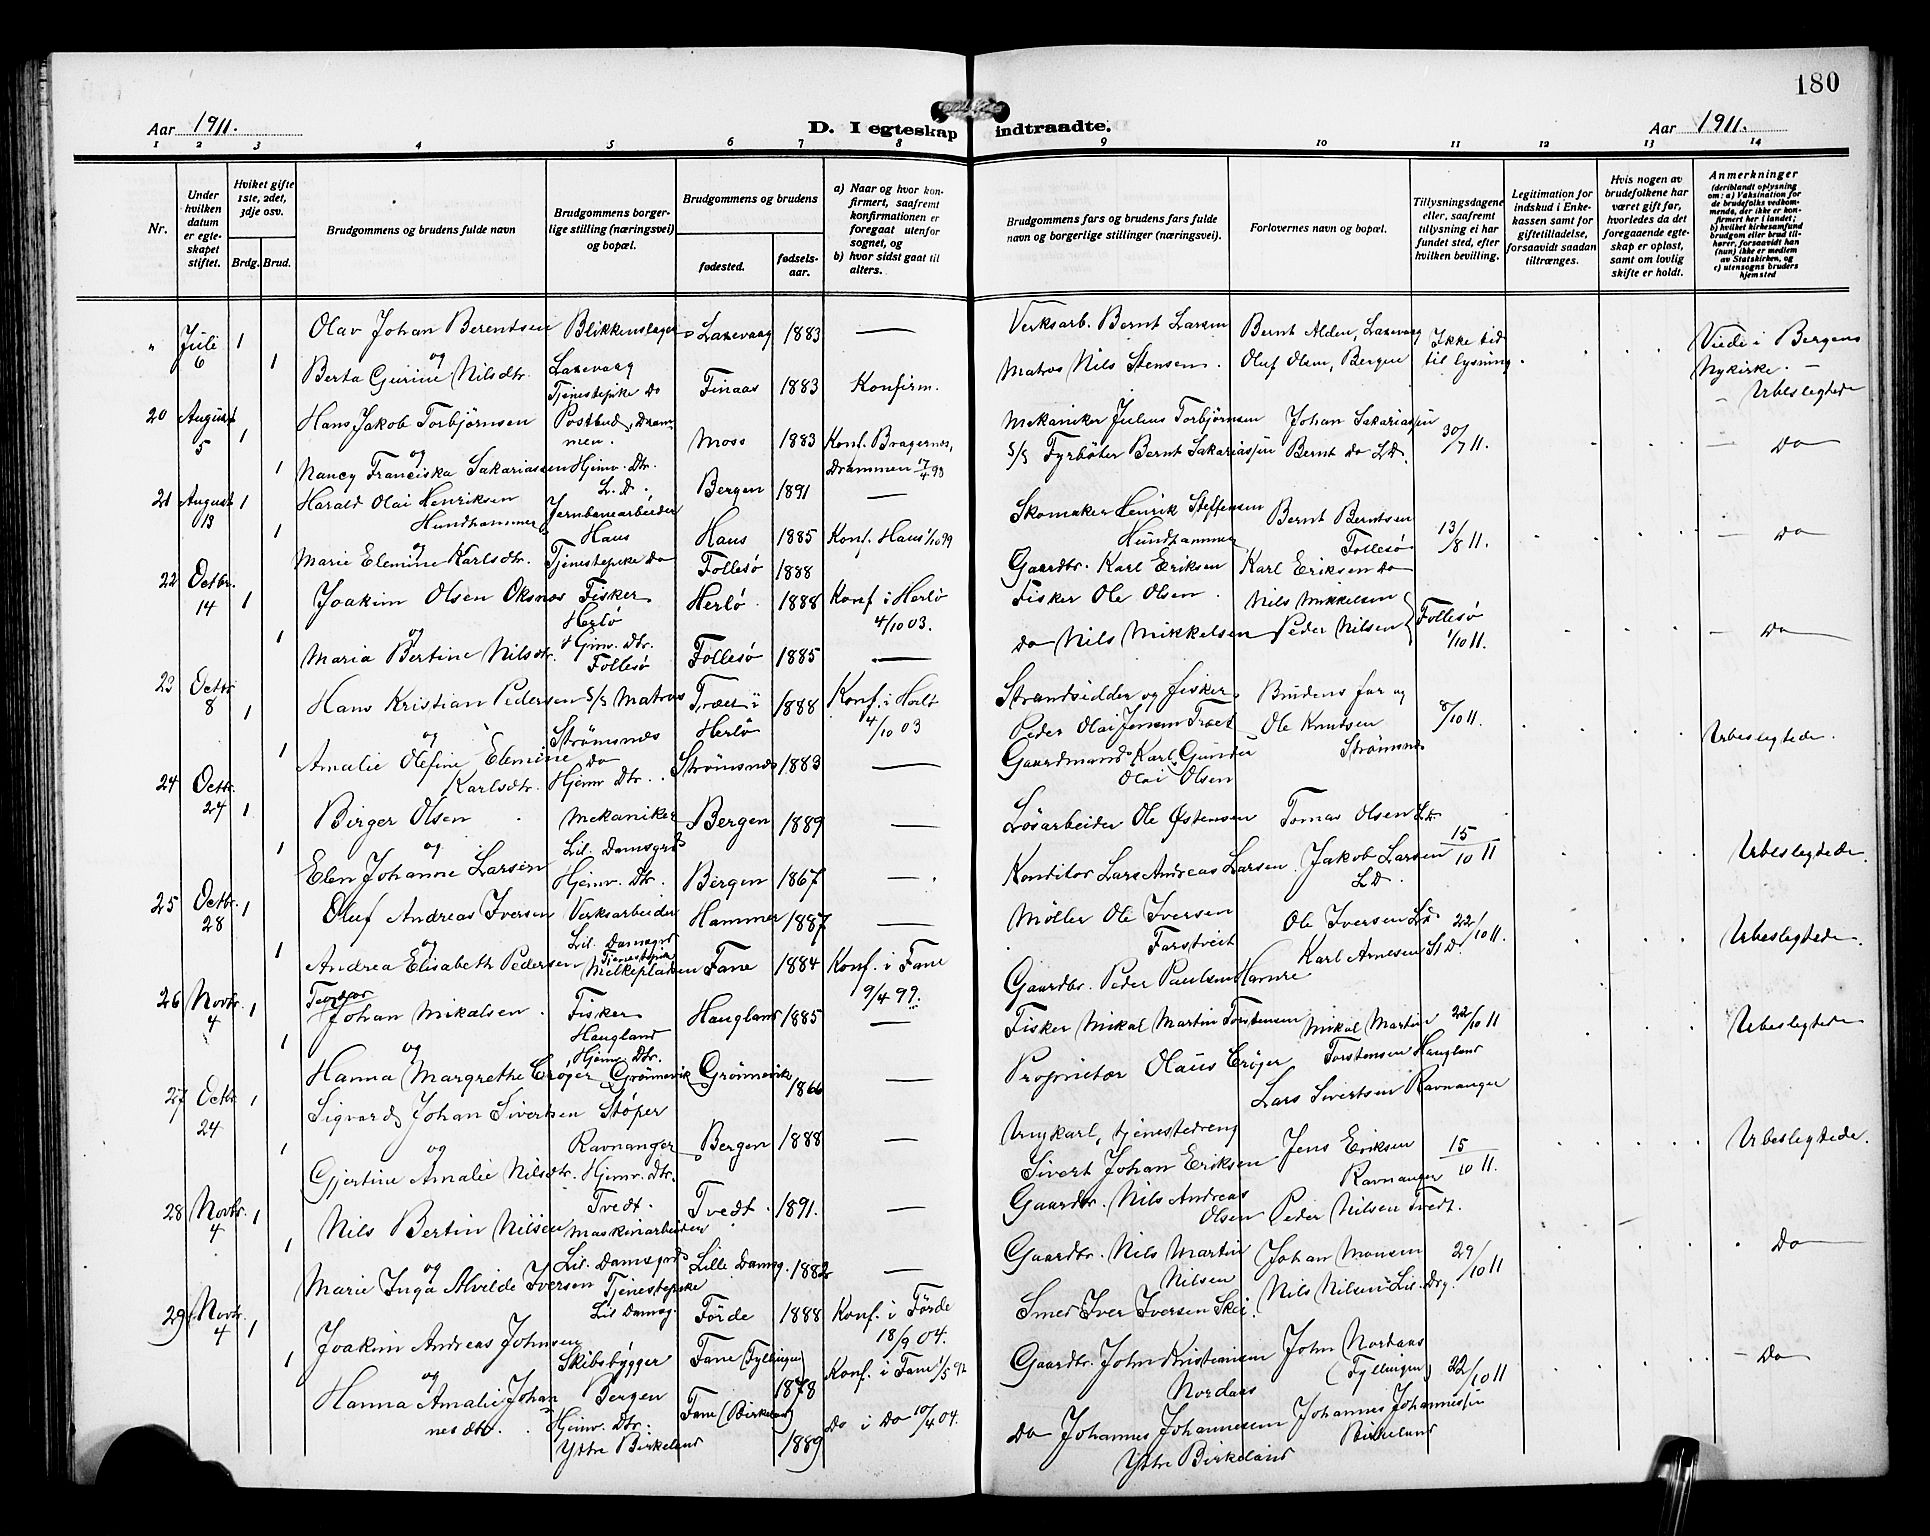 180
Aar 1911.
D. I egteskap indtraadte.
Aar 1911.
1 2 3 4 5 6 7 8 9 10 11 12 13 14
Nr.
Under hvilken datum er egteskapet stiftet.
Hviket gifte 1ste, 2det, 3dje osv.
Brdg. Brud.
Brudgommens og brudens fulde navn
Brudgommens borgerlige stilling (næringsvei) og bopæl.
Brudgommens og brudens
fødested.
fødselsaar.
a) Naar og hvor konfirmert, saafremt konfirmationen er foregaat utenfor sognet, og
b) hvor sidst gaat til alters.
Brudgommens fars og brudens fars fulde navn og borgerlige stillinger (næringsvei).
Forlovernes navn og bopæl.
Tillysningsdagene eller, saafremt tillysning ei har fundet sted, efter hvilken bevilling.
Legitimation for indskud i Enkekassen samt for giftetilladelse, forsaavidt saadan tiltrænges.
Hvis nogen av brudefolkene har været gift før, hvorledes da det foregaaende egteskap er opløst, samt om lovlig skifte er holdt.
Anmerkninger
(deriblandt oplysning om: a) Vaksination for de brudefolks vedkommende, der ikke er konfirmert her i landet; b) hvilket kirkesamfund brudgom eller brud tilhører, forsaavidt han (hun) ikke er medlem av Statskirken, og c) utensogns bruders hjemsted
" Juli 6 1 Olav Johan Berentsen Blikkenslager Laxevaag 1883 — Verksarb. Bernt Larsen Bernt Alden, Laxevaag Ikke tid til lysning Viede i Bergens Nykirke. —
og Laxevaag
1 Berta Gurine Nilsdtr. Tjenestepike Do Finaas 1883 Konfirm. Matros Nils Stensen. Oluf Olsen, Bergen — Ubeslegtede
20 August 5 1 Hans Jakob Torbjörnsen Postbud, Drammen. Moss 1883 Konf. Bragernes, Drammen 17/4 98 Mekaniker Julius Torbjörnsen Johan Sakariassen 30/7 11. — Do
og
1 Nancy Franciska Sakariassen Hjemv. Dtr. L. D. Bergen 1891 — S/S Fyrböter Bernt Sakariassen Bernt Do L.D.
21 August 13 1 Harald Olai Henriksen Hundhammer Jernbanearbeider Haus Haus 1885 Konf. Haus 1/10 99 Skomaker Henrik Steffensen Hundhammer Bernt Berntsen Follesö 13/8 11. — Do
og
1 Marie Elemine Karlsdtr. Tjenestepike Do Follesö 1888 Gaardbr. Karl Eriksen Karl Eriksen Do
22 Octbr. 14 1 Joakim Olsen Oksnes Fisker Herlö Herlö 1888 Konf. i Herlö 4/10 03. Fisker Ole Olsen. Nils Mikkelsen Follesö 1/10 11. — Do
og
1 Maria Bertine Nilsdtr. Hjmv. Dtr. Follesö Follesö 1885 — Do Nils Mikkelsen Peder Nilsen
23 Octbr 8 1 Hans Kristian Pedersen S/S Matros Strömsnes Træet i Herlö 1888 Konf. i Herlö 4/10 03 Strandsidder og fisker Peder Olai Jensen Træet Brudens far og 8/10 11. Ubeslegtede.
og
1 Amalie Olefine Elemine Karlsdtr. Do Hjemv. Dtr. Strömsnes 1883 — Gaardmand Karl Gunder Olai Olsen Ole Knutsen Strömsnes
24 Octbr. 24 1 Birger Olsen Mekaniker Lil. Damsgrd Bergen 1889 — Lösarbeider Ole Östensen Tomas Olsen L.D. 15/10 11 Ubeslegtede
og
1 Elen Johanne Larsen Hjemv. Dtr. Bergen 1867 — Konditor Lars Andreas Larsen Jakob Larsen L.D.
25 Octbr. 28 1 Oluf Andreas Iversen Verksarbeider Lil. Damsgrd Hammer 1887 — Möller Ole Iversen Farstveit Ole Iversen L.D. 22/10 11. Ubeslegtede.
og
1 Andrea Elisabeth Pedersen Tjenestepik Melkepladsen Fane 1884 Konf. i Fane 9/4 99. Gaardbr. Peder Paulsen Hamre Karl Arnesen St D.
26 Novbr. 4 1 Teodor Johan Mikalsen. Fisker Haugland Haugland 1885 — Fisker Mikal Martin Torstensen Mikal Martin Torstensen Haugland 22/10 11 Ubeslegtede
og
1 Hanna Margrethe Cröger Hjemv. Dtr. Grönnevik Grönnevik 1866 — Proprietær Olaus Cröger Lars Sivertsen Ravnanger
27 Octbr 24 1 Sigvard Johan Sivertsen Stöper Ravnanger Bergen 1888 — Ungkarl, tjenestedreng Sivert Johan Eriksen Jens Eriksen Ravnanger 15/10 11. Ubeslegtede.
og
1 Gjertine Amalie Nilsdtr. Hjemv. Dtr. Tvedt. Tvedt. 1891. — Gaardbr. Nils Andreas Olsen Peder Nilsen Tvedt.
28 Novbr. 4 1 Nils Bertin Nilsen Maskinarbeider Lil. Damsgrd Lille Damsg. 1882 — Gaardbr. Nils Martin Nilsen Johan Monsen 29/10 11 Do
og
1 Marie Inga Alvilde Iversen Tjenestepike Lil Damsg. Förde 1888 Konf. i Förde 18/9 04. Smed Iver Iversen Skei. Nils Nilsen Lil. Dsg.
29 Novbr. 4 1 Joakim Andreas Johnsen Skibsbygger Bergen Fane (Fyllingen) 1878 Konf. i Fane 1/5 92 Gaardbr. John Kristiansen Nordaas John Nordaas (Fyllingen) 22/10 11 — Do
og
1 Hanna Amalie Johannesdtr. Hjemv. Dtr. Ytre Birkeland Fane (Birkeland) 1889 Do i Do 10/4 04. Do Johannes Johannesen Ytre Birkeland Johannes Johannessen Birkeland